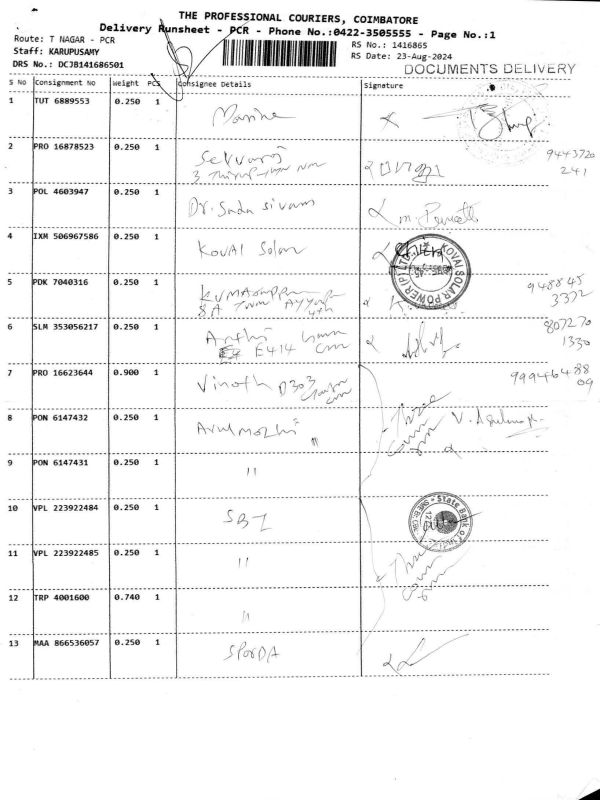 THE PROFESSIONAL COURIERS, COIMBATORE
Delivery Runsheet - PCR - Phone No.:0422-3505555 - Page No.:1
Route: T NAGAR - PCR
RS No.: 1416865
Staff: KARUPUSAMY
RS Date: 23-Aug-2024
DRS No.: DCJB141686501
DOCUMENTS DELIVERY
S No Consignment No Weight PCS Consignee Details Signature
1 TUT 6889553 0.250 1
2 PRO 16878523 0.250 1 Selvaraj
9443720
241
3 POL 4603947 0.250 1 Dr. Sada Sivam
4 IXM 506967586 0.250 1 KOVAI Solar
KOVAI SOLAR POWER (P) LTD
5 PDK 7040316 0.250 1
8A Town
948845
3372
6 SLM 353056217 0.250 1
E414
807270
1330
7 PRO 16623644 0.900 1 Vinoth D303
99946488
09
8 PON 6147432 0.250 1 Arulmozhi "
Three
9 PON 6147431 0.250 1 "
10 VPL 223922484 0.250 1 SBI
State Bank of India
11 VPL 223922485 0.250 1 "
Three
12 TRP 4001600 0.740 1 "
13 MAA 866536057 0.250 1